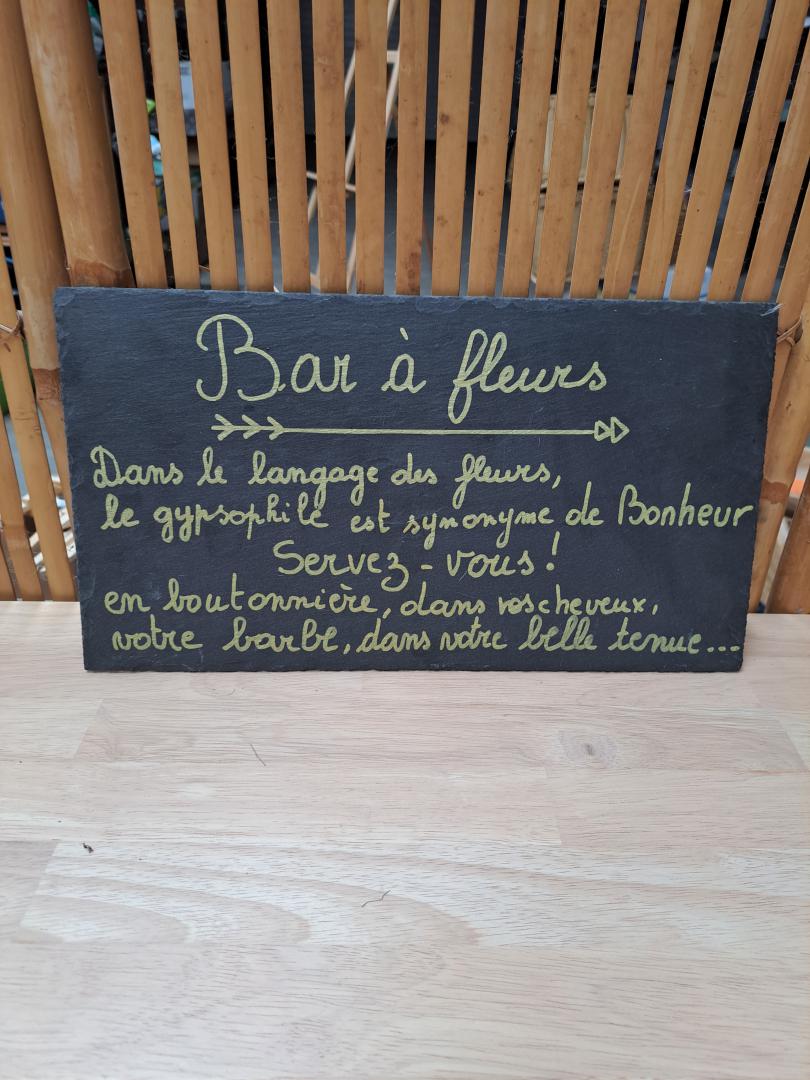 Bar à fleurs
Dans le langage des fleurs,
le gypsophile est synonyme de Bonheur
Servez-vous !
en boutonnière, dans vos cheveux,
votre barbe, dans votre belle tenue...